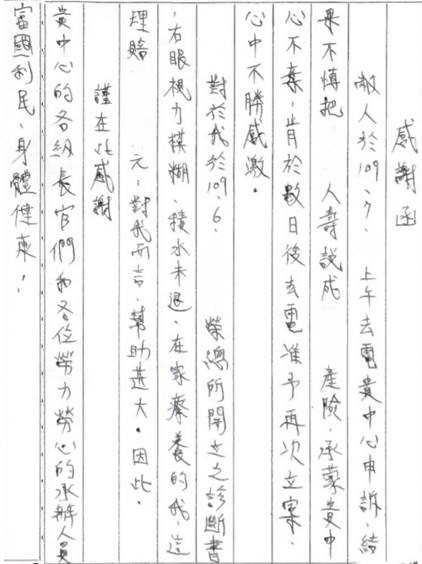 感謝函
敝人於109、7、 上午去電貴中心申訴,結
果不慎把 人壽說成 產險,承蒙貴中
心不棄,肯於數日後去電准予再次立案,
心中不勝感激。
對於我於109、6、 榮總所開立之診斷書
,右眼視力模糊,積水未退,在家療養的我,這
理賠 元,對我而言,幫助甚大。因此,
謹在此感謝
貴中心的各級長官們和各位勞力勞心的承辦人員
富國利民、身體健康!